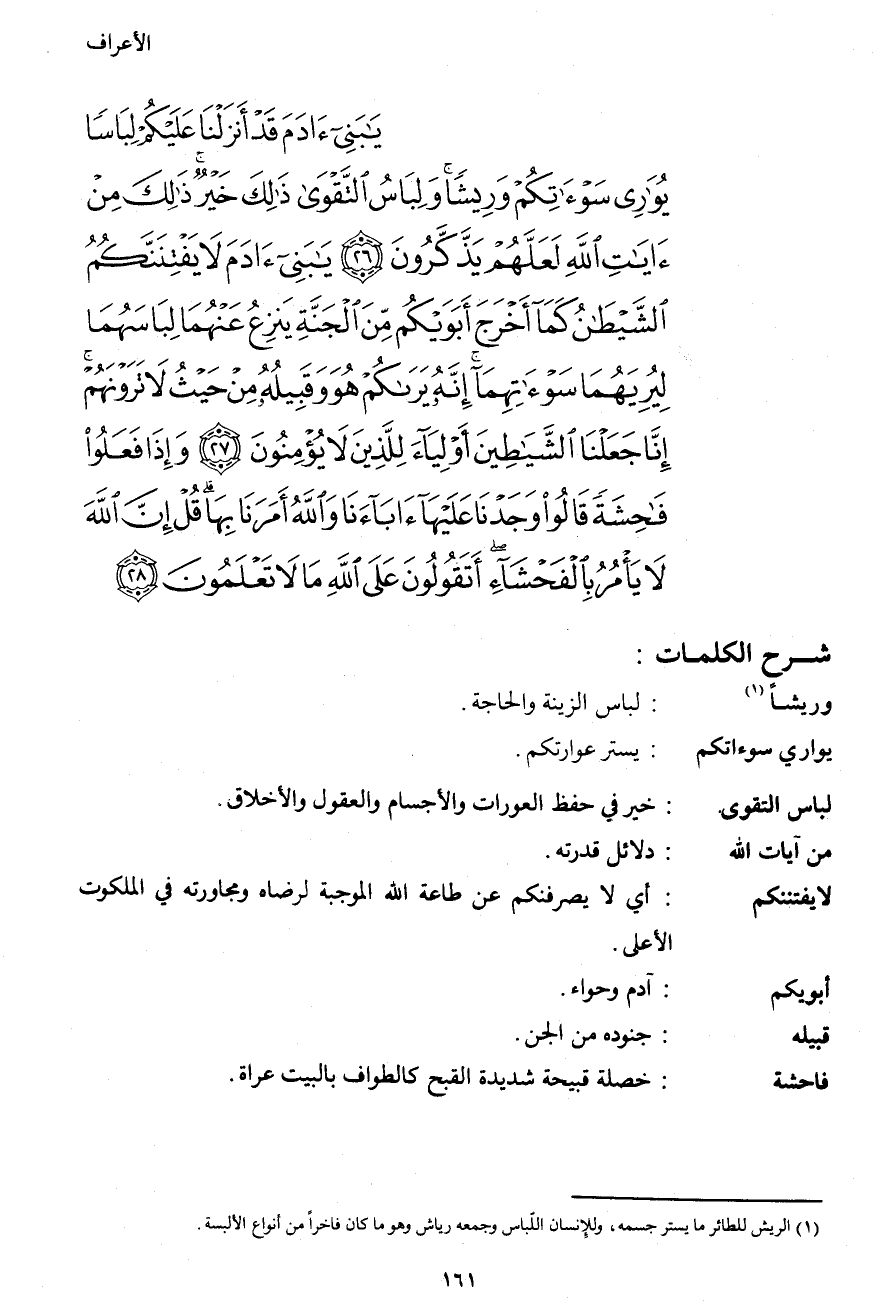 الأعراف
يَٰبَنِيٓ ءَادَمَ قَدۡ أَنزَلۡنَا عَلَيۡكُمۡ لِبَاسٗا
يُوَٰرِي سَوۡءَٰتِكُمۡ وَرِيشٗاۖ وَلِبَاسُ ٱلتَّقۡوَىٰ ذَٰلِكَ خَيۡرٞۚ ذَٰلِكَ مِنۡ
ءَايَٰتِ ٱللَّهِ لَعَلَّهُمۡ يَذَّكَّرُونَ ٢٦ يَٰبَنِيٓ ءَادَمَ لَا يَفۡتِنَنَّكُمُ
ٱلشَّيۡطَٰنُ كَمَآ أَخۡرَجَ أَبَوَيۡكُم مِّنَ ٱلۡجَنَّةِ يَنزِعُ عَنۡهُمَا لِبَاسَهُمَا
لِيُرِيَهُمَا سَوۡءَٰتِهِمَآۚ إِنَّهُۥ يَرَىٰكُمۡ هُوَ وَقَبِيلُهُۥ مِنۡ حَيۡثُ لَا تَرَوۡنَهُمۡۚ
إِنَّا جَعَلۡنَا ٱلشَّيَٰطِينَ أَوۡلِيَآءَ لِلَّذِينَ لَا يُؤۡمِنُونَ ٢٧ وَإِذَا فَعَلُواْ
فَٰحِشَةٗ قَالُواْ وَجَدۡنَا عَلَيۡهَآ ءَابَآءَنَا وَٱللَّهُ أَمَرَنَا بِهَاۗ قُلۡ إِنَّ ٱللَّهَ
لَا يَأۡمُرُ بِٱلۡفَحۡشَآءِۖ أَتَقُولُونَ عَلَى ٱللَّهِ مَا لَا تَعۡلَمُونَ ٢٨
شـرح الكلمـات :
وريشـاً (١) : لباس الزينة والحاجة .
يواري سوءاتكم : يستر عوارتكم .
لباس التقوى : خير في حفظ العورات والأجسام والعقول والأخلاق .
من آيات الله : دلائل قدرته .
لايفتننكم : أي لا يصرفنكم عن طاعة الله الموجبة لرضاه ومجاورته في الملكوت
الأعلى .
أبويكم : آدم وحواء .
قبيله : جنوده من الجن .
فاحشة : خصلة قبيحة شديدة القبح كالطواف بالبيت عراة .
(١) الريش للطائر ما يستر جسمه ، وللإنسان اللّباس وجمعه رياش وهو ما كان فاخراً من أنواع الألبسة .
١٦١